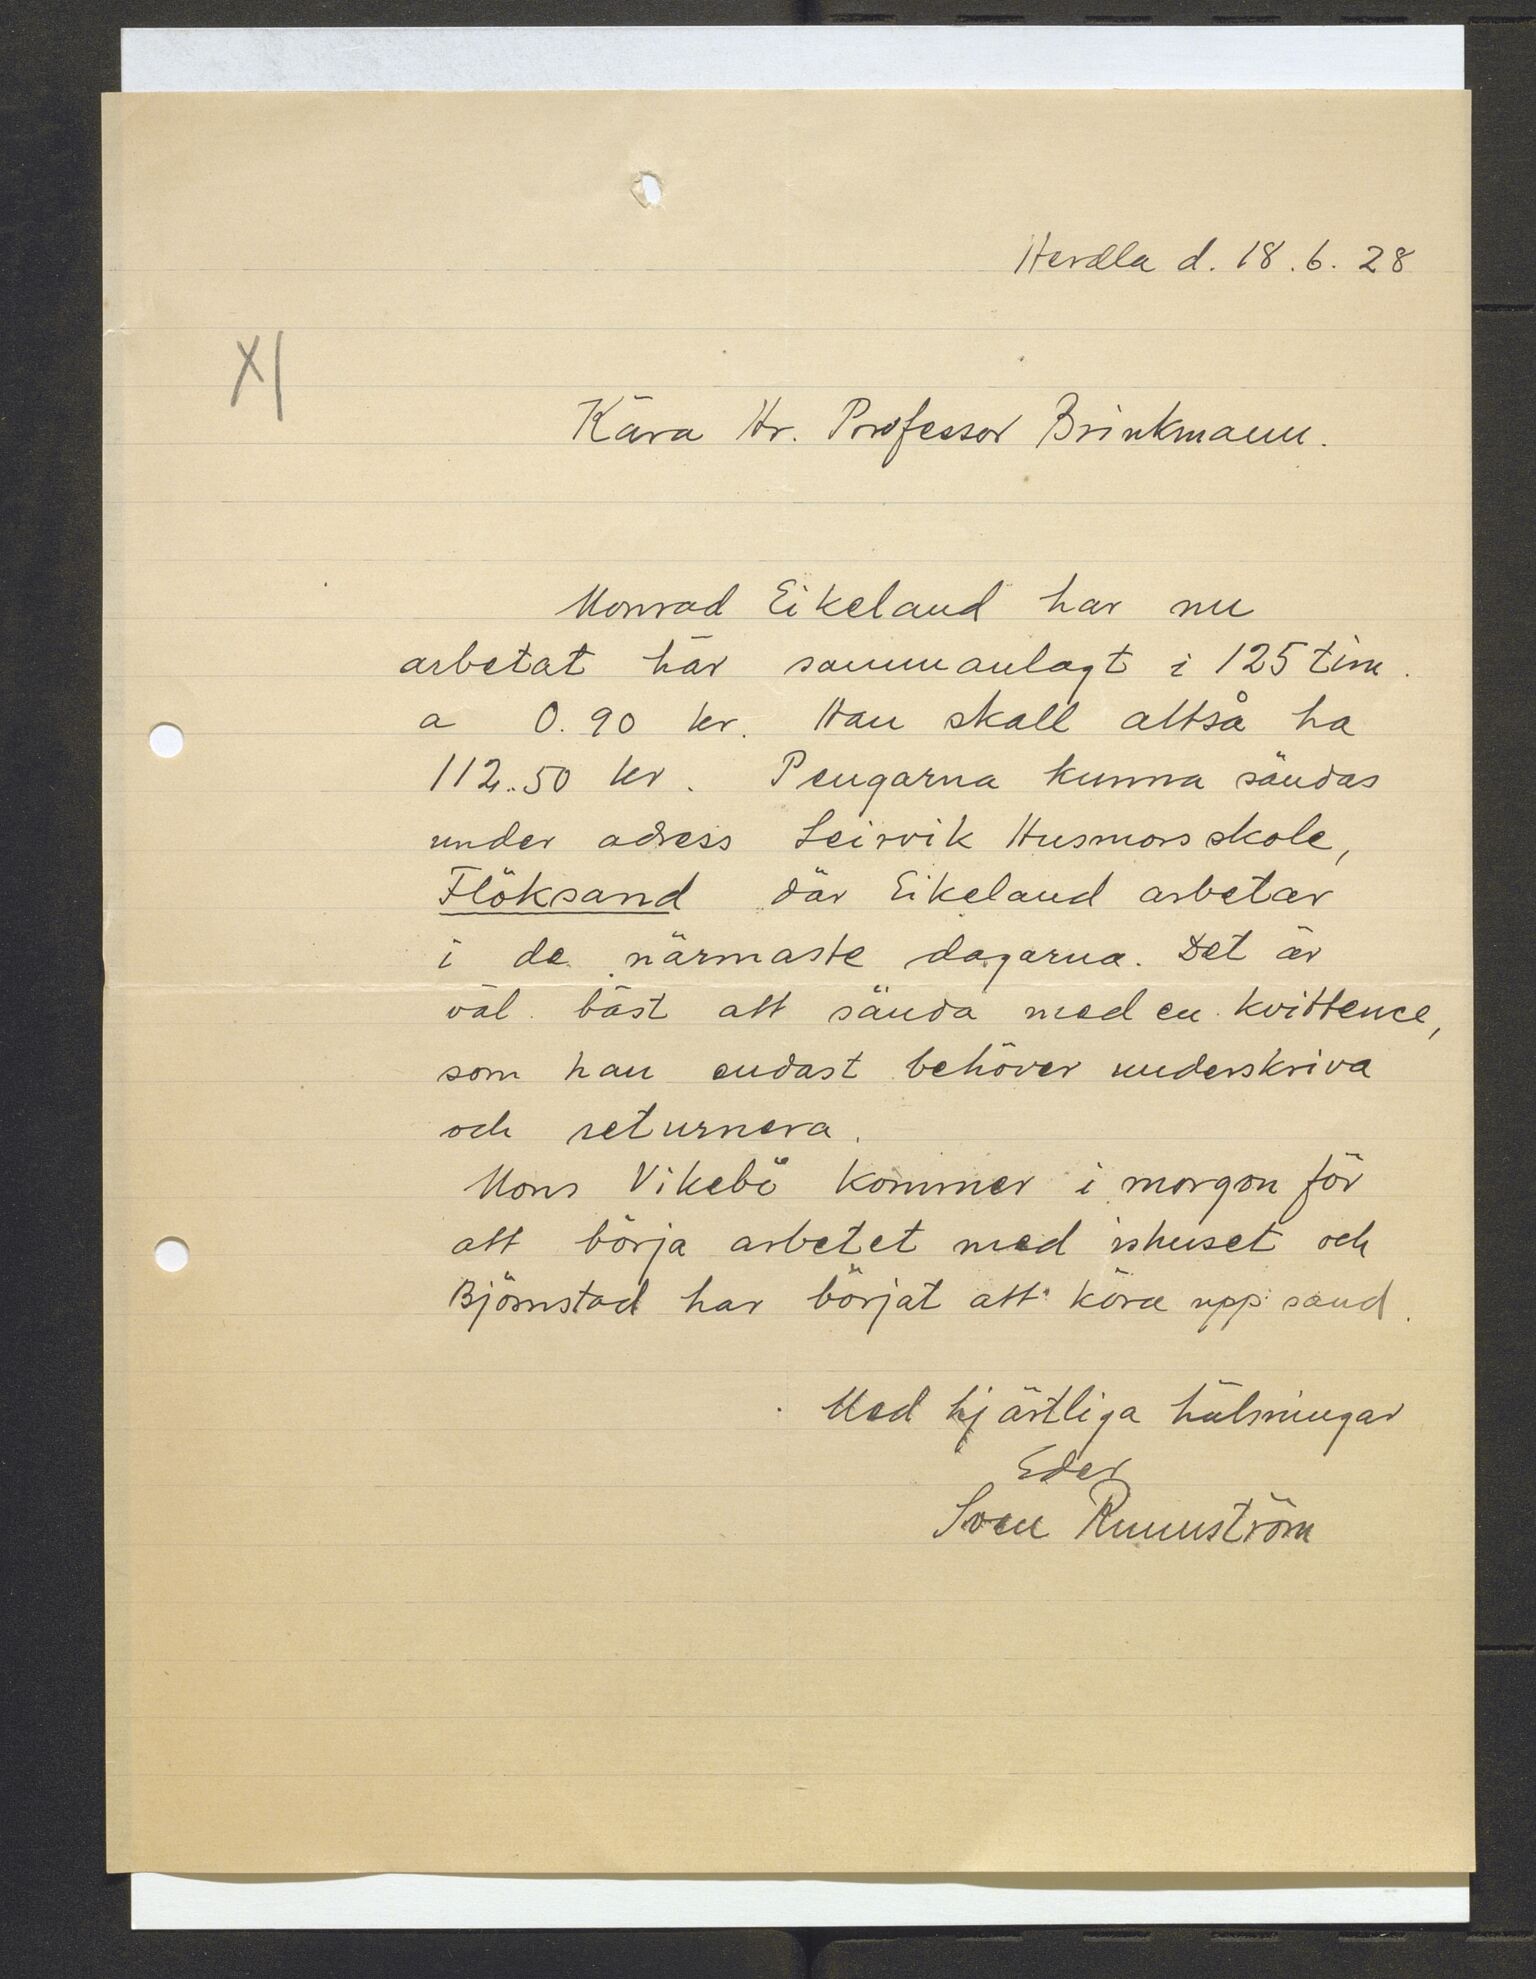 Herdla d. 18.6.28
X/
Kära Hr. Professor Brinkmann.
Monrad Eikeland har nu
arbetat här sammanlagt i 125 tim.
a 0.90 kr. Han skall altså ha
112.50 kr. Pengarna kunna sändas
under adress Leirvik Husmorsskole,
Flöksand där Eikeland arbetar
i de närmaste dagarna. Det är
väl bäst att sända med en kvittence,
som han endast behöver underskriva
och returnera.
Mons Vikebö kommer i morgon för
att börja arbetet med ishuset och
Björnstad har börjat att köra upp sand.
Med hjärtliga hälsningar
Eder
Sven Runnström